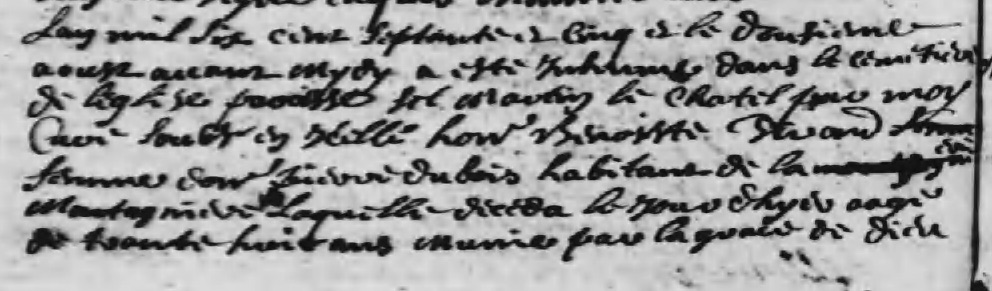 Lan mil six cent septante et cinq et le dousieme
aoust avant mydy a esté inhumé dans le cemetiere
de leglise parroisse St Martin le Chatel par moy
Curé soubz signé honn Benoiste
femme d'hon Pierre Dubois habitant de la
Montagniere laquelle deceda le jour d'hyer aagé
de trante huit ans munie par la grace de dieu